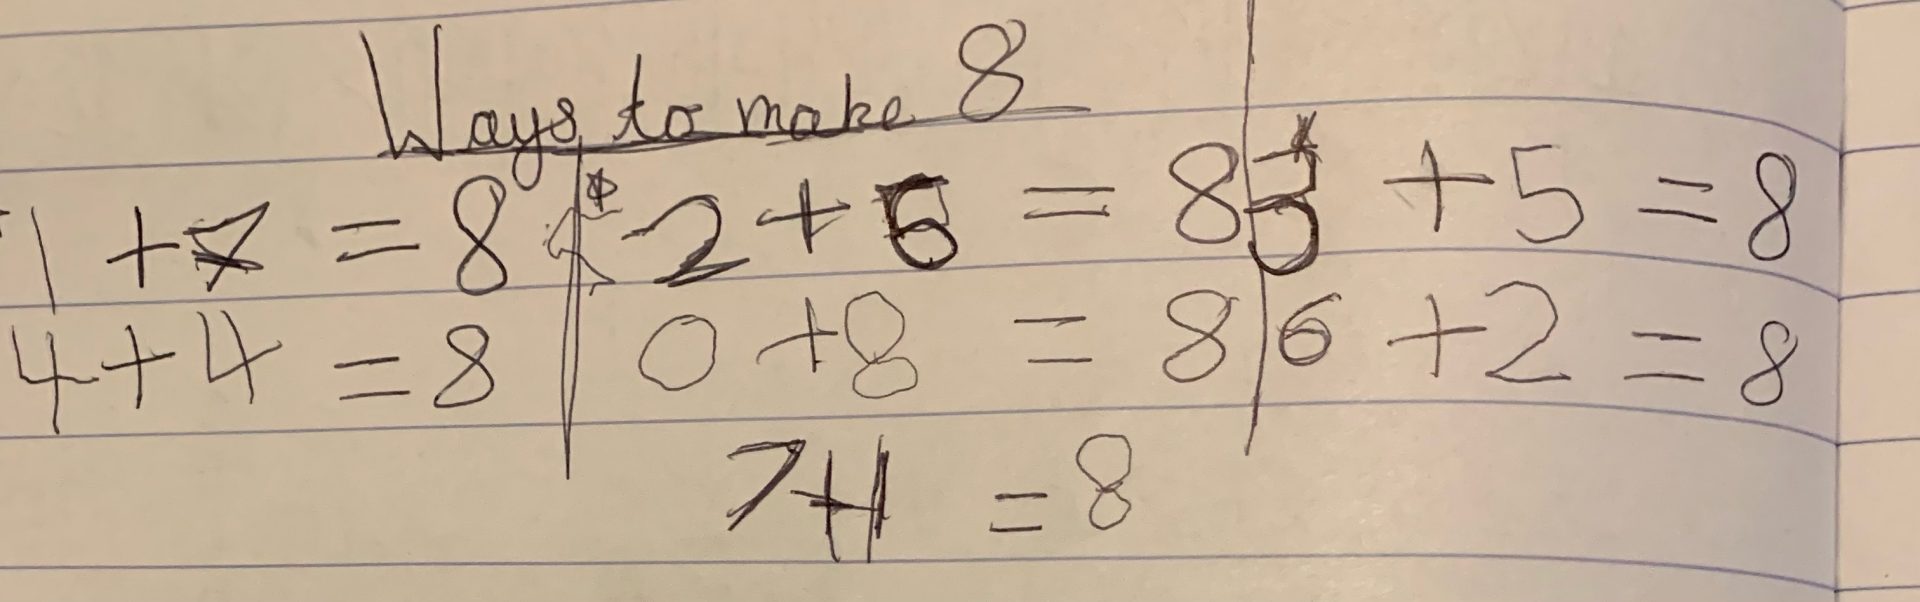 Ways to make 8
1 + 7 = 8 2 + 6 = 8 3 + 5 = 8
4 + 4 = 8 0 + 8 = 8 6 + 2 = 8
7 + 1 = 8